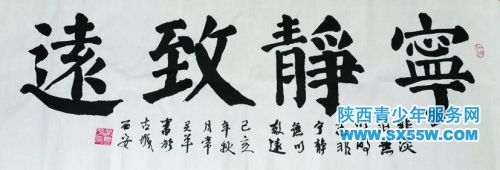 寧靜致遠
非淡
泊無
以明
志非
寧靜
無以
致遠
己亥
年秋
月常
書於
古城
西安
陕西青少年服务网
www.sx55w.com